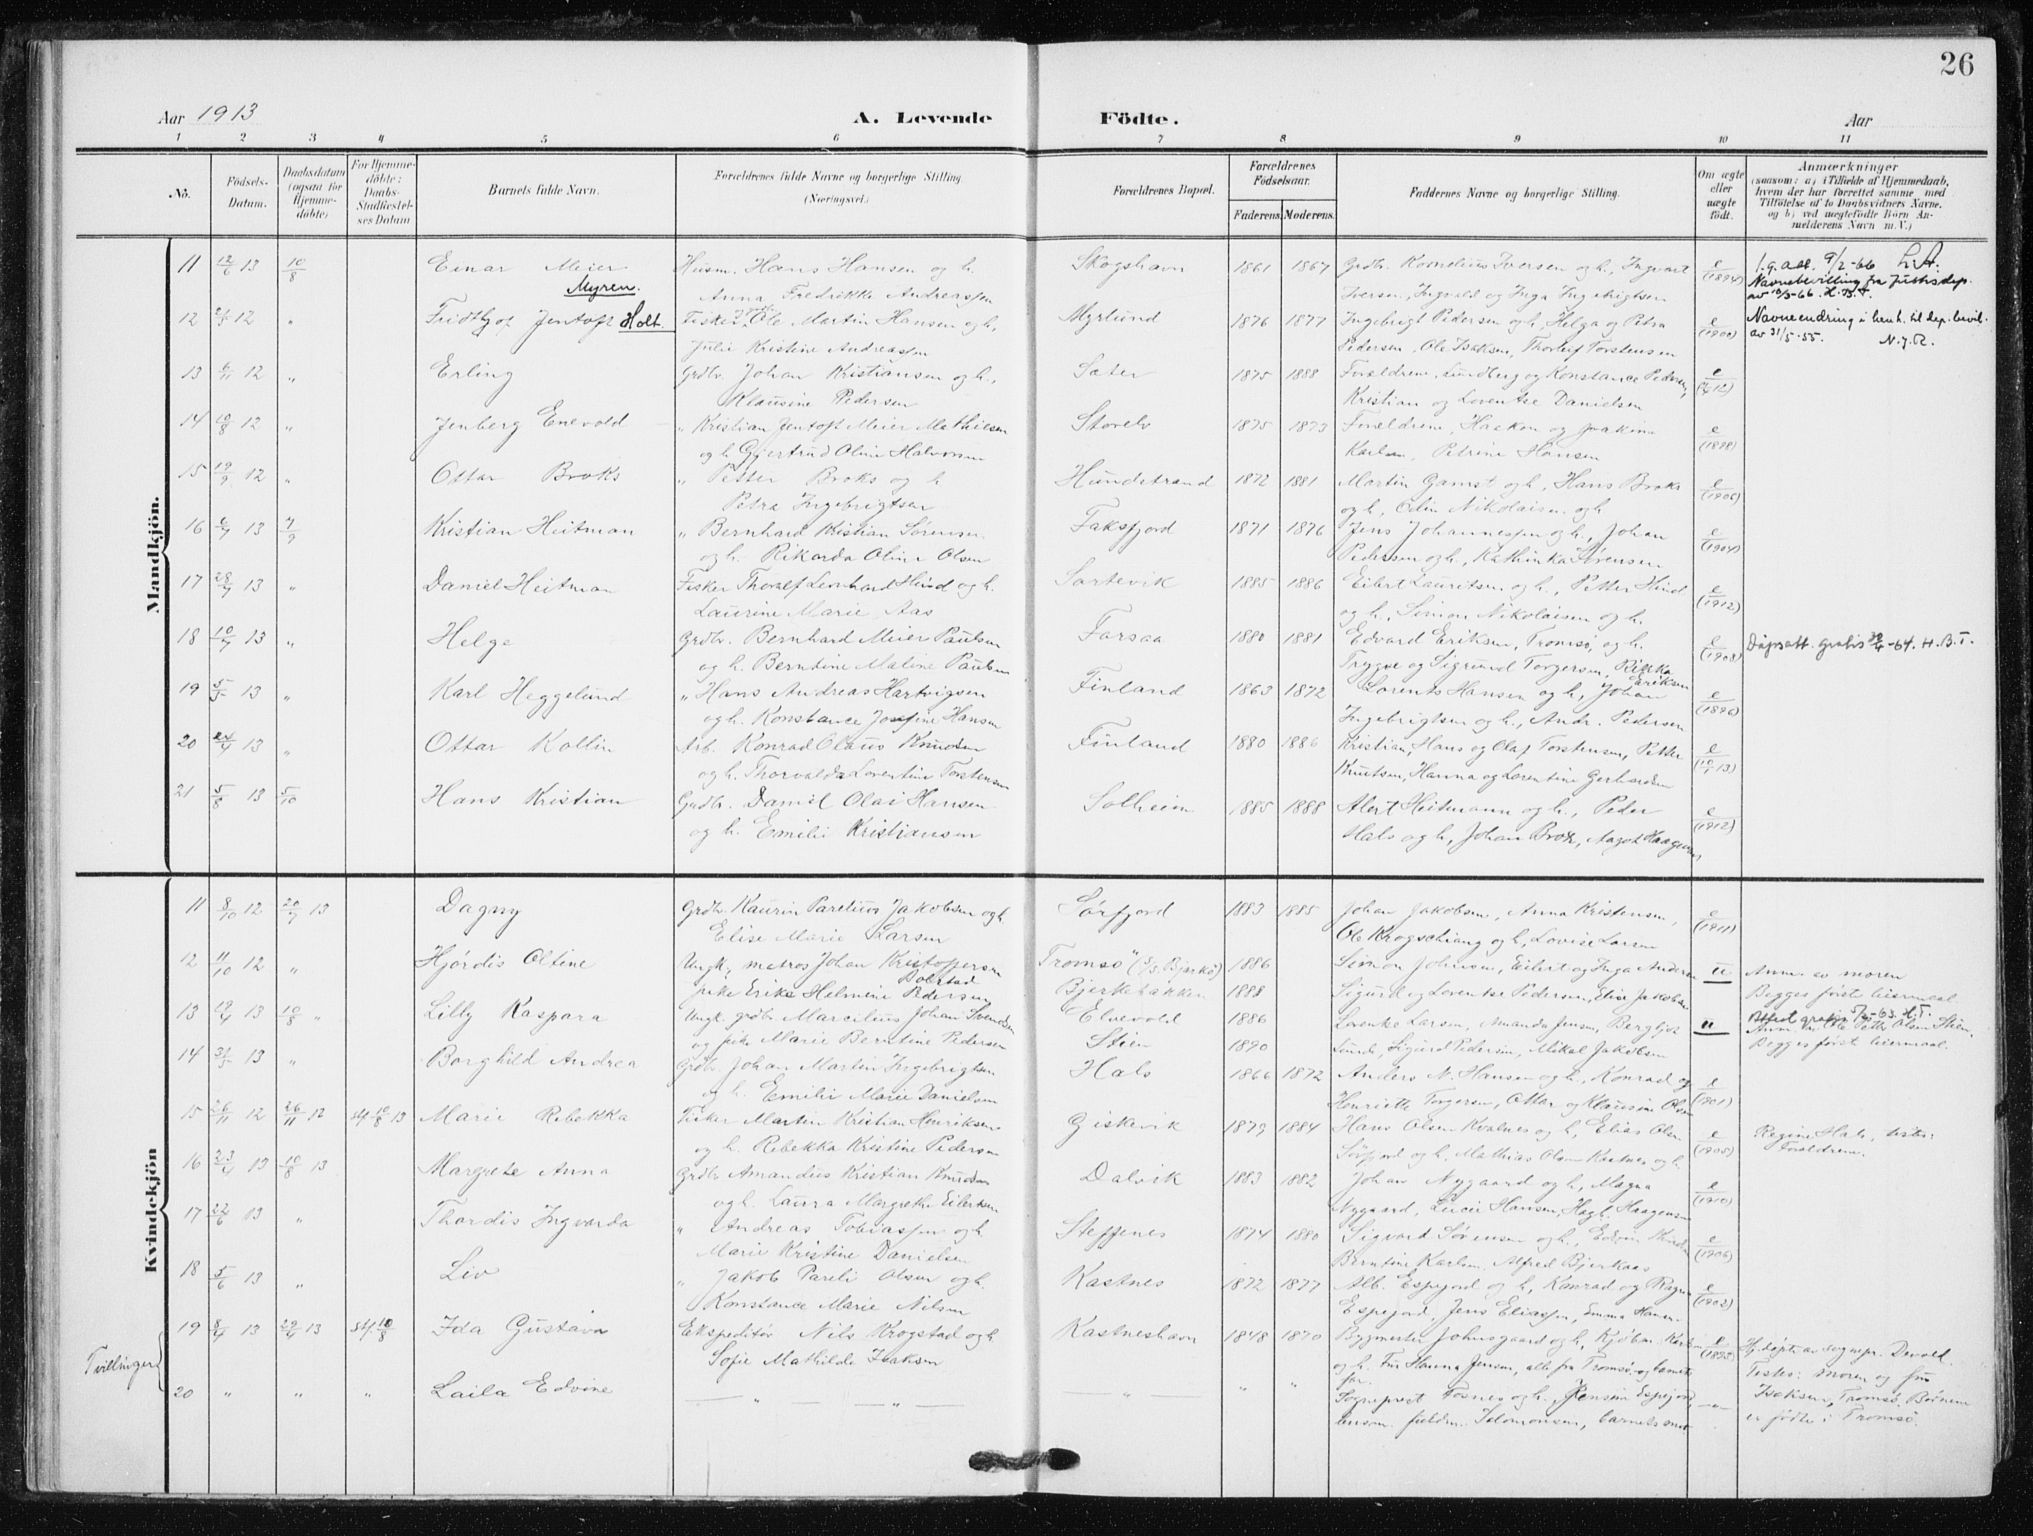 26
Aar 1913
A. Levende Födte.
Aar
1 2 3 4 5 6 7 8 9 10 11
No.
Födsels-
Datum.
Daabsdatum
(ogsaa for
Hjemme-
döbte)
For Hjemme-
döbte:
Daabs-
Stadfæstel-
ses Datum
Barnets fulde Navn.
Forældrenes fulde Navne og borgerlige Stilling
(Næringsvei.)
Forældrenes Bopæl.
Forældrenes
Födselsaar.
Faderens. Moderens.
Faddernes Navne og borgerlige Stilling.
Om ægte
eller
uægte
födt.
Anmærkninger
(saasom: a) i Tilfælde af Hjemmedaab,
hvem der har forrettet samme, med
Tilföielse af to Daabsvidners Navne,
og b) ved uægtefödte Börn An-
melderens Navn m. V.)
Mandkjön.
11 12/6 13 10/8 Einar Meier Husm. Hans Hansen og h. Skogshavn 1861 1867 Grdbr. Kornelius Iversen og h., Ingvart e (1894)
Myren. Anna Fredrikke Andreassen Iversen, Ingvald og Inga Ingebrigtsen
Navnebevilling fra Justisdep.
av 10/3-66. H.B.T.
12 2/3 12 " Fridtjof Jentoft Holt Fisker Ole Martin Hansen og h. Myrlund 1876 1877 Ingebrigt Pedersen og h., Helga og Petra e (1900) Navneendring i henh. til dep. bevil.
Julie Kristine Andreassen Pedersen, Ole Isaksen, Thorleif Torstensen av 31/5-55. N.J.R.
13 6/11 12 " Erling Grdbr. Johan Kristiansen og h., Sæter 1875 1888 Forældrene, Lundberg og Konstance Pedersen, e
Klausine Pedersen Kristian og Loventse Danielsen
14 10/8 12 " Jenberg Enevold " Kristian Jentoft Meier Mathiesen Storelv 1875 1873 Forældrene, Haakon og Joakim e (1898)
og h. Gjertrud Oline Halvorsen Karlsen, Petrine Hansen
15 19/9 12 " Ottar Broks " Petter Broks og h. Hundstrand 1872 1881 Martin Gamst og h., Hans Broks e (1906)
Petra Ingebrigtsen og h., Odin Nikolaisen og h.
16 6/7 13 7/9 Kristian Heitman " Bernhard Kristian Sørensen Faksfjord 1871 1876 Jens Johannessen og h., Johan e (1904)
og h. Rikarda Oline Olsen Pedersen og h., Kathinka Sørensen
17 28/7 13 " Daniel Heitman Fisker Thoralf Leonhard Hind og h. Sortevik 1885 1886 Eilert Lauritsen og h., Petter Hind e (1912)
Laurine Marie Aas og h., Simon Nikolaisen og h.
18 10/7 13 " Helge Grdbr. Bernhard Meier Paulsen Forsaa 1880 1881 Edvard Eriksen, Tromsø, og h. e (1908) Dåpsatt. gratis -64. H.B.T.
og h. Berntine Matine Paulsen Trygve og Sigrund Torgersen, Rikka Eriksen
19 5/5 13 " Karl Heggelund " Hans Andreas Hartvigsen Finland 1863 1872 Lorents Hansen og h., Johan e (1896)
og h. Konstance Josefine Hansen Ingebrigtsen og h., Andr. Pedersen
20 24/4 13 " Ottar Kollin Arb. Konrad Olaus Knudsen Finland 1880 1886 Kristian, Hans og Olaf Torstensen, Petter e
og h. Thorvalda Loventine Torstensen Knutsen, Hanna og Lorentine Gerhardsen
21 5/8 13 5/10 Hans Kristian Grdbr. Daniel Olai Hansen Solheim 1885 1888 Alert Heitmann og h., Peder e (1912)
og h. Emilie Kristiansen Hals og h., Johan Brox, Aagot Haagensen
Kvindekjön
11 8/10 12 20/7 13 Dagny Grdbr. Kaurin Parelius Jakobsen og h. Sørfjord 1883 1885 Johan Jakobsen, Anna Kristensen, e (1911)
Elise Marie Larsen Ole Krogseliang og h., Lovise Larsen
12 11/10 12 " Hjørdis Oltine Ungk., matros Johan Kristoffersen Dolstad Tromsø (S/S. Bjarkø) 1886 Simon Johnsen, Eilert og Inga Andersen u Anm. av moren
pike Erika Helmine Pedersen Bjerkebakken 1888 Sigurd og Loventse Pedersen, Elise Jakobsen Begges først leiermaal.
13 19/4 13 10/8 " Lilly Kaspara Ungk. grdbr. Marcilius Johan Svendsen Elvevold 1886 Lovenke Larsen, Amanda Jensen, Bergljot u
og pike Marie Berntine Pedersen Stien 1890 Lund, Sigurd Pedersen, Mikal Jakobsen Begges først leiermaal.
14 31/5 13 " Borghild Andrea Grdbr. Johan Marten Ingebrigtsen Hals 1866 1872 Anders N. Hansen og h., Konrad og e (1901)
og h. Emilie Marie Danielsen Henriette Torgersen, Ottar og Klausine Olsen
15 26/11 12 26/11 12 stf. 10/8 13 Marie Rebekka Fisker Marten Kristian Henriksen Giskevik 1879 1884 Hans Olsen Kvalnes og h., Elias Olsen e (1905) Regine Hals, testes:
og h. Rebekka Kristine Pedersen Sørfjord og h., Mathias Olsen Kastnes og h. Forældrene.
16 23/4 13 10/8 13 Margrete Anna Grdbr. Amandus Kristian Knudsen Dalvik 1883 1882 Johan Nygaard og h., Magna e (1910)
og h. Laura Margrethe Eilertsen Nygaard, Lucie Hansen, Hagb. Haagensen
17 22/6 13 " Thordis Ingvarda " Andreas Tobiassen og h. Steffenes 1874 1880 Sigvard Sørensen og h., Edvin e (1906)
Marie Kristine Danielsen Berntine Karlsen, Alfred Bjerkaas
18 5/6 13 " Liv " Jakob Pareli Olsen og h. Kastnes 1872 1877 Alb. Espejord og h., Konrad og Ragna e (1902)
Konstance Marie Nilsen Espejord, Jens Eliassen, Emma Hansen
Tvillinger
19 8/4 13 29/6 13 stf. 10/8 Ida Gustava Ekspeditør Nils Krogstad og h. Kastneshavn 1848 1870 Bygmester Johnsgaard og h., e (1895) Hj. døpt av sognepr. Devold.
Sofie Mathilde Isaksen og h. Frk Hanna Jensen, alle fra Tromsø, og barnets far. Testes: moren og fru
20 " " " Laila Edvine — " — " — " — " " Sogneprest Fosnes og h., Jensine Espejord, — " — Isaksen, Tromsø. Børnene
Salomonsen, barnets mor er fødte i Tromsø.